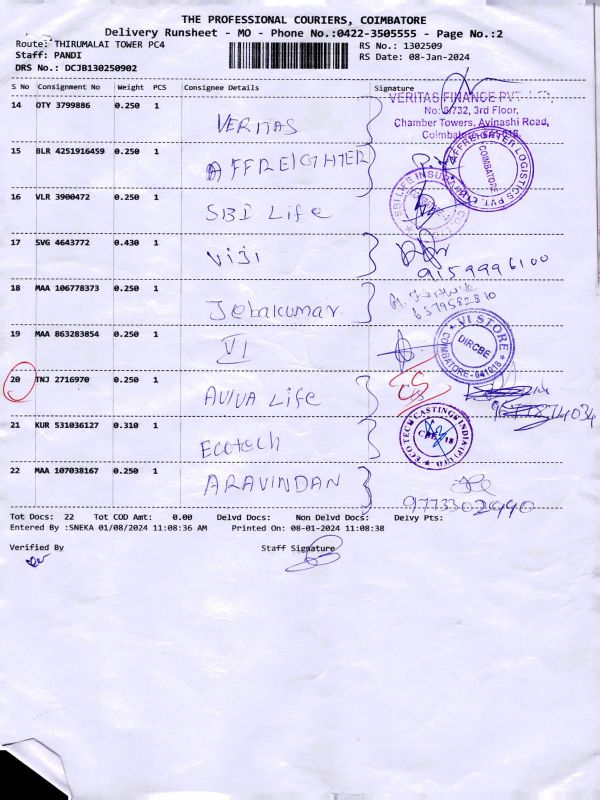 THE PROFESSIONAL COURIERS, COIMBATORE
Delivery Runsheet - MO - Phone No.:0422-3505555 - Page No.:2
Route: THIRUMALAI TOWER PC4
RS No.: 1302509
Staff: PANDI
RS Date: 08-Jan-2024
DRS No.: DCJB130250902
S No Consignment No Weight PCS Consignee Details Signature
14 OTY 3799886 0.250 1 VERITAS
VERITAS FINANCE PVT. LTD,
No: 6/732, 3rd Floor,
Chamber Towers, Avinashi Road,
Coimbatore
15 BLR 4251916459 0.250 1 AFFREIGHTER
COIMBATORE
LOGISTICS PVT. LTD
16 VLR 3900472 0.250 1 SBI Life
SBI LIFE INSURANCE CO
17 SVG 4643772 0.430 1 Viji
9159996100
18 MAA 106778373 0.250 1 Jebakumar
6379582810
19 MAA 863283854 0.250 1 VI
VI STORE
DIRCBE
COIMBATORE-641018
20 TNJ 2716970 0.250 1 AVIVA Life
21 KUR 531036127 0.310 1 Ecotech
ECOTECH CASTING INDIA (P) Ltd
CBE-18
22 MAA 107038167 0.250 1 ARAVINDAN
9773302990
Tot Docs: 22 Tot COD Amt: 0.00 Delvd Docs: Non Delvd Docs: Delvy Pts:
Entered By :SNEKA 01/08/2024 11:08:36 AM Printed On: 08-01-2024 11:08:38
Verified By Staff Signature